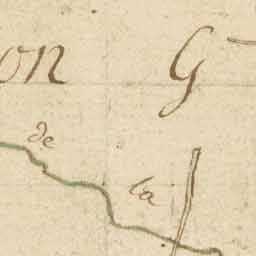 on G
de
la